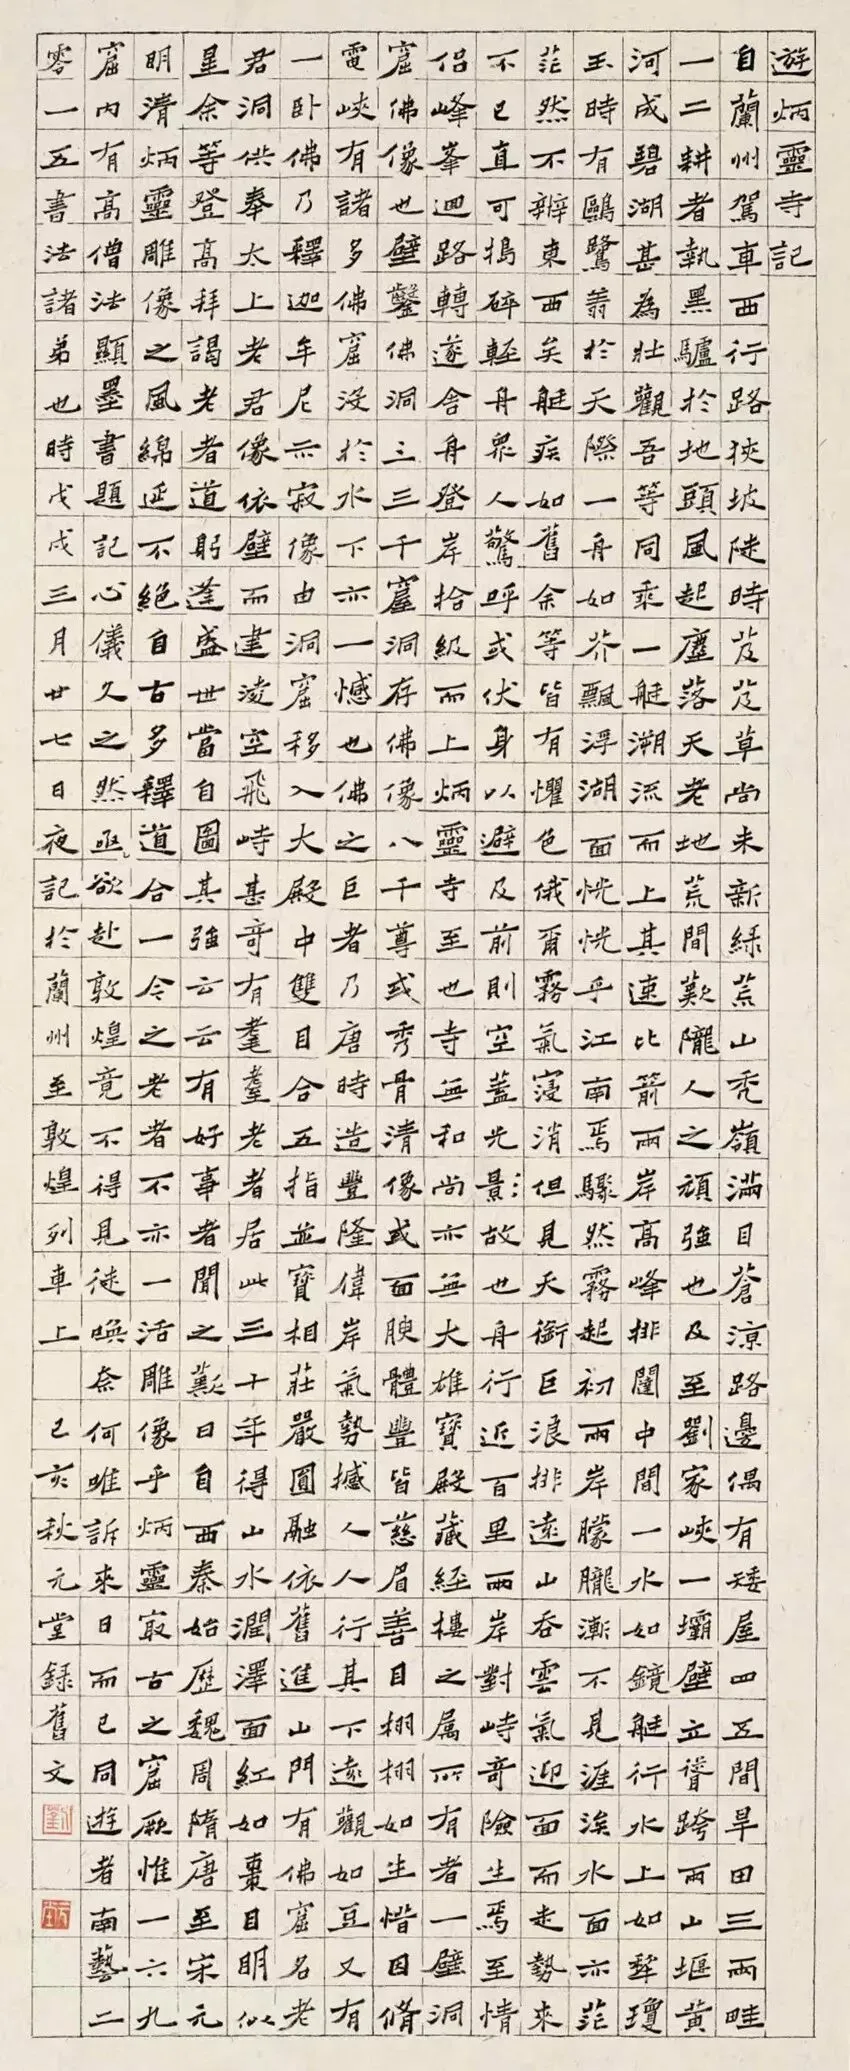 遊炳靈寺記
自蘭州駕車西行路狹坡陡時芨芨草尚未新綠荒山禿嶺滿目蒼涼路邊偶有矮屋四五間旱田三兩畦
一二耕者執黑驢於地頭風起塵落天老地荒間歎隴人之頑強也及至劉家峽一壩壁立聳跨兩山堰黃
河成碧湖甚為壯觀吾等同乘一艇溯流而上其速比箭兩岸高峰排闥中間一水如鏡艇行水上如犂瓊
玉時有鷗鷺翥於天際一舟如芥飄浮湖面恍恍乎江南焉驟然霧起初兩岸朦朧漸不見涯涘水面亦茫
茫然不辨東西矣艇疾如舊余等皆有懼色俄爾霧氣寖消但見天銜巨浪排遠山吞雲氣迎面而走勢來
不已直可搗碎輕舟眾人驚呼或伏身以避及前則空蓋光景故也舟行近百里兩岸對峙奇險生焉至情
侶峰峯迴路轉遂舍舟登岸拾級而上炳靈寺至也寺無和尚亦無大雄寶殿藏經樓之屬所有者一壁洞
窟佛像也壁鑿佛洞三三千窟洞存佛像八千尊或秀骨清像或面腴體豐皆慈眉善目栩栩如生惜因脩
電峽有諸多佛窟沒於水下亦一憾也佛之巨者乃唐時造豐隆偉岸氣勢撼人人行其下遠觀如豆又有
一卧佛乃釋迦牟尼示寂像由洞窟移入大殿中雙目合五指並寶相莊嚴圓融依舊進山門有佛窟名老
君洞供奉太上老君像依壁而建淩空飛峙甚奇有耄耋老者居此三十年得山水潤澤面紅如棗目明似
星余等登高拜謁老者道躬逢盛世當自圖其強云云有好事者聞之歎曰自西秦始歷魏周隋唐至宋元
明清炳靈雕像之風綿延不絕自古多釋道合一今之老者不亦一活雕像乎炳靈寂古之窟厥惟一六九
窟內有高僧法顯墨書題記心儀久之然亟欲赴敦煌竟不得見徒喚奈何唯訴來日而已同遊者南藝二
零一五書法諸弟也時戊戌三月廿七日夜記於蘭州至敦煌列車上 己亥秋元堂錄舊文